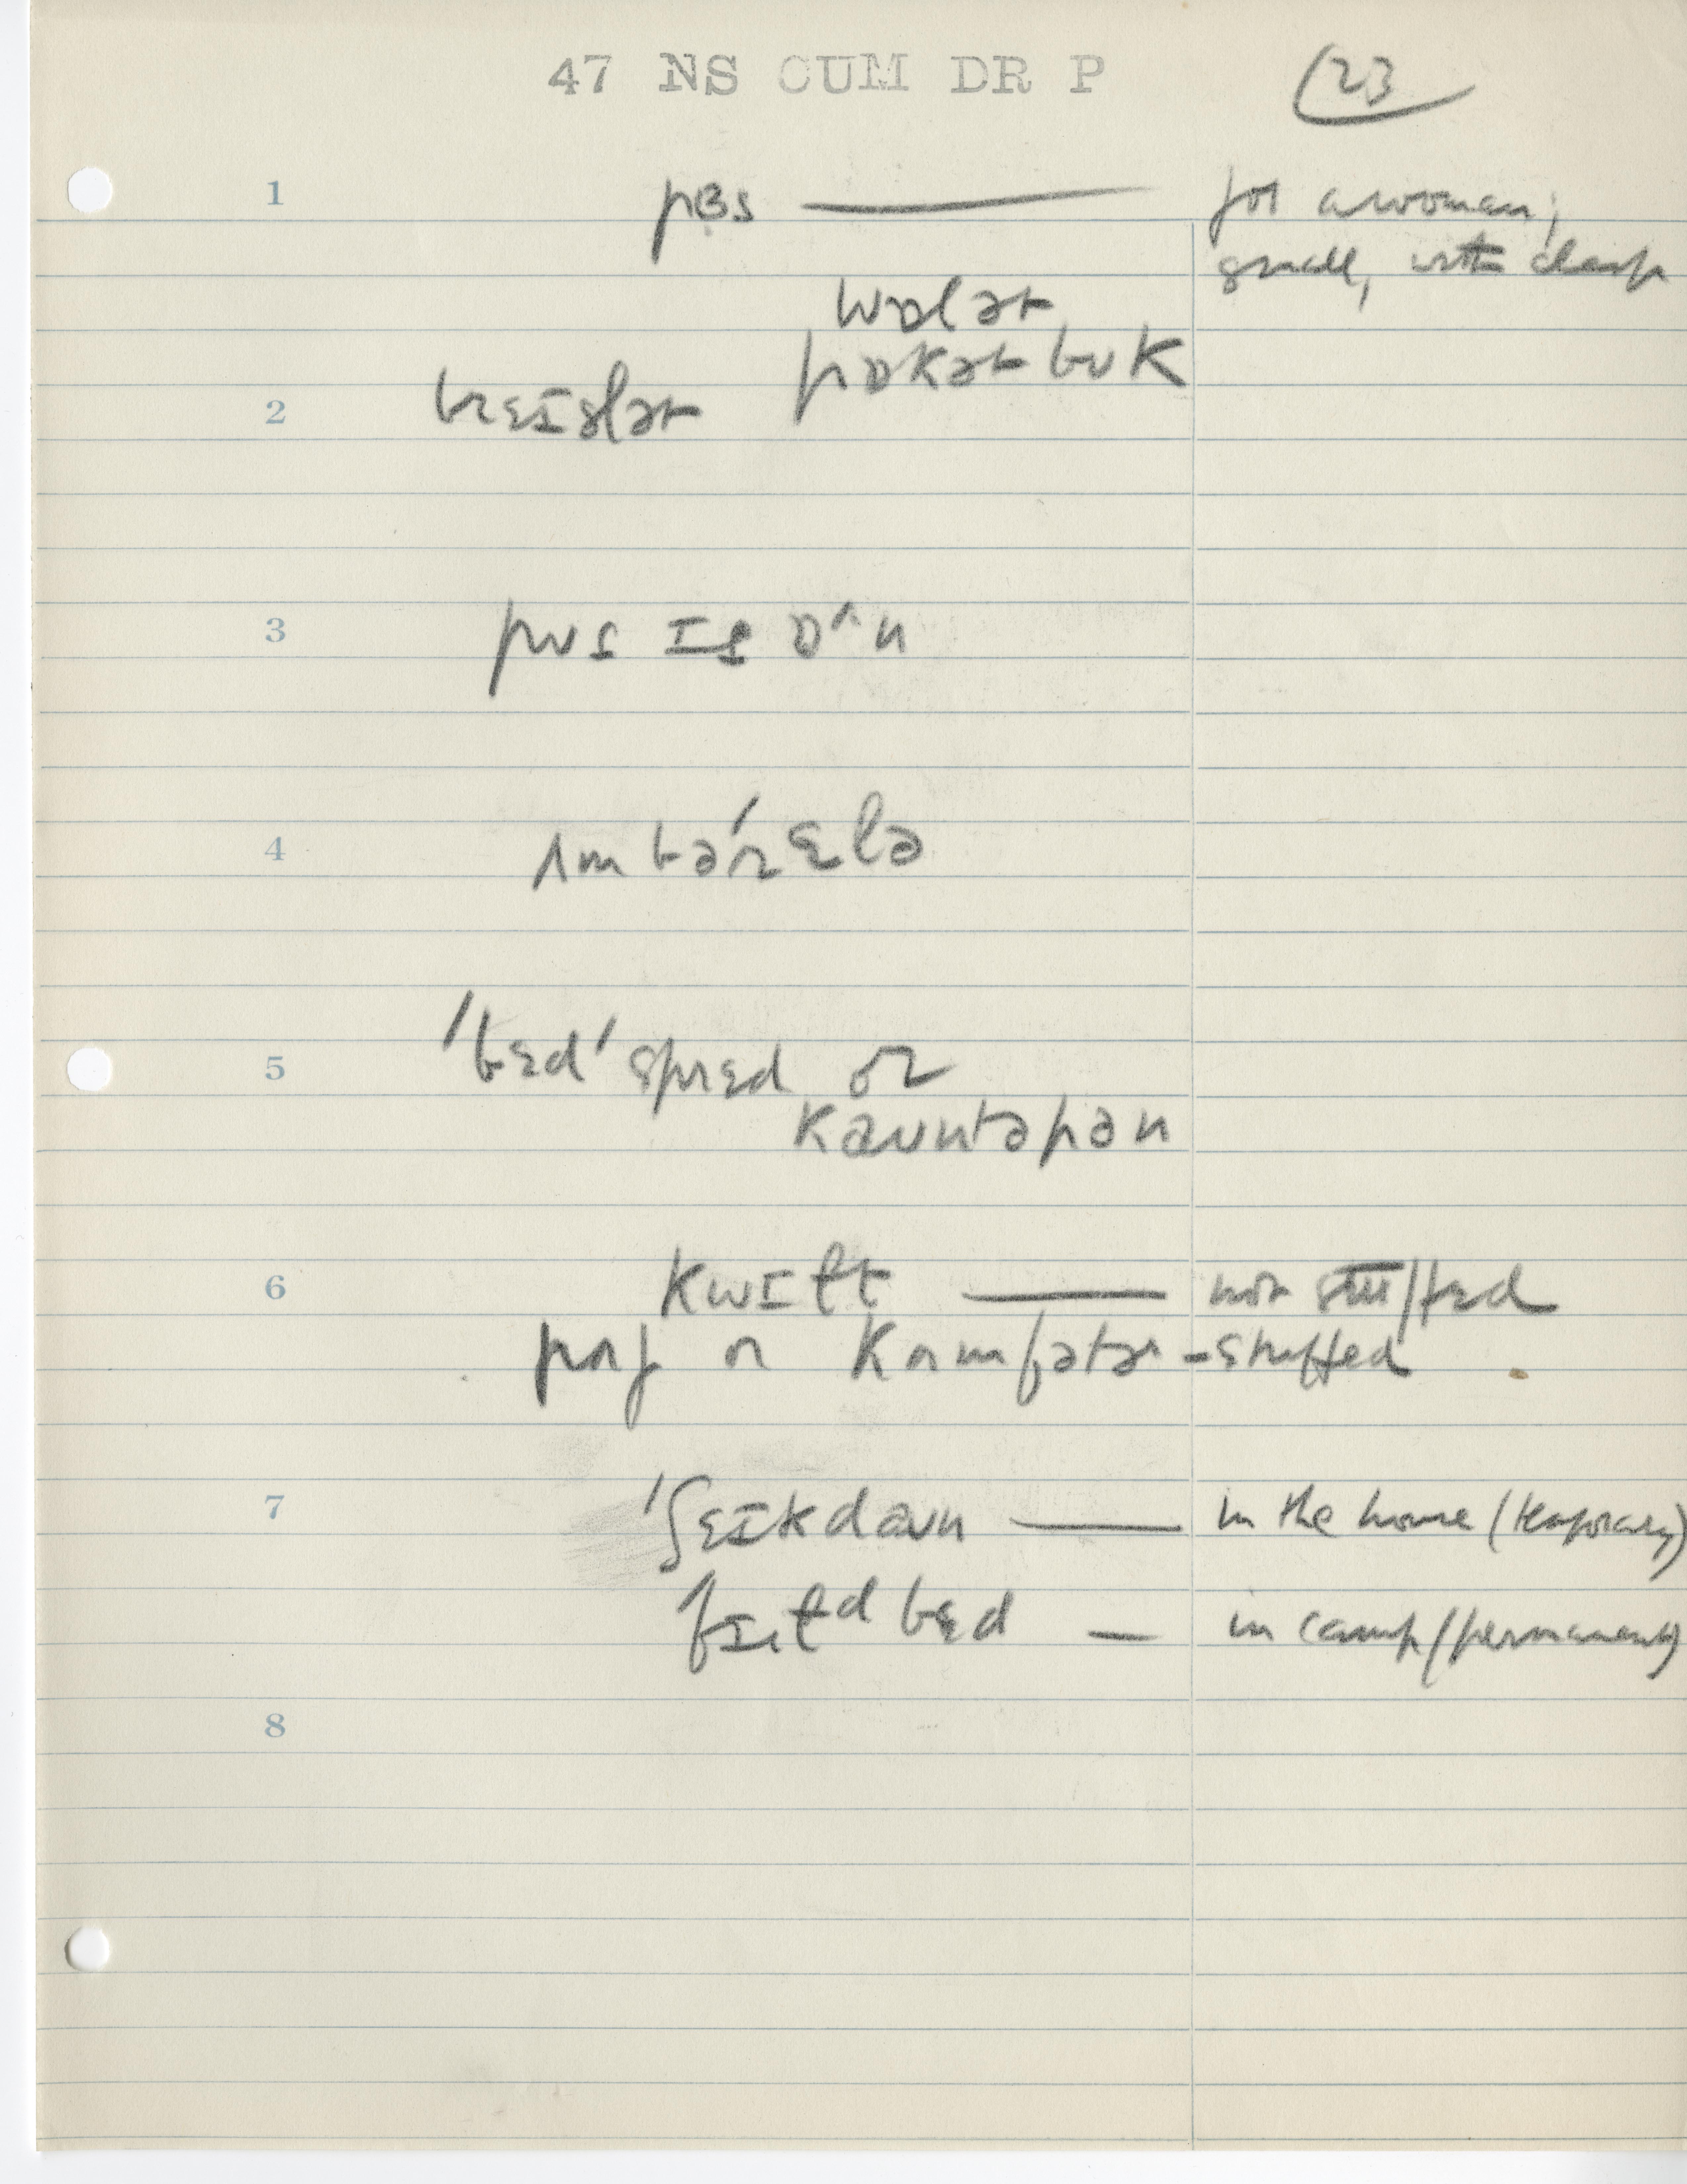 47 NS CUM DR P
23
1 pɜs — for a woman;
small, with clasp
wɒlət
pɒkət bʊk
2 bɹɛɪslət
3 pʊs ɪs ɒ^n
4 ʌm bə́ɹɛlə
5 'bɛd'spɹɛd oɹ
kaʊntəpən
6 kwɪɫt — not stuffed
or kʌmfətəɹ - stuffed
7 'ʃɛɪkdaʊn — in the house (temporary)
fɪiɫd bɛd — in camp (permanent)
8